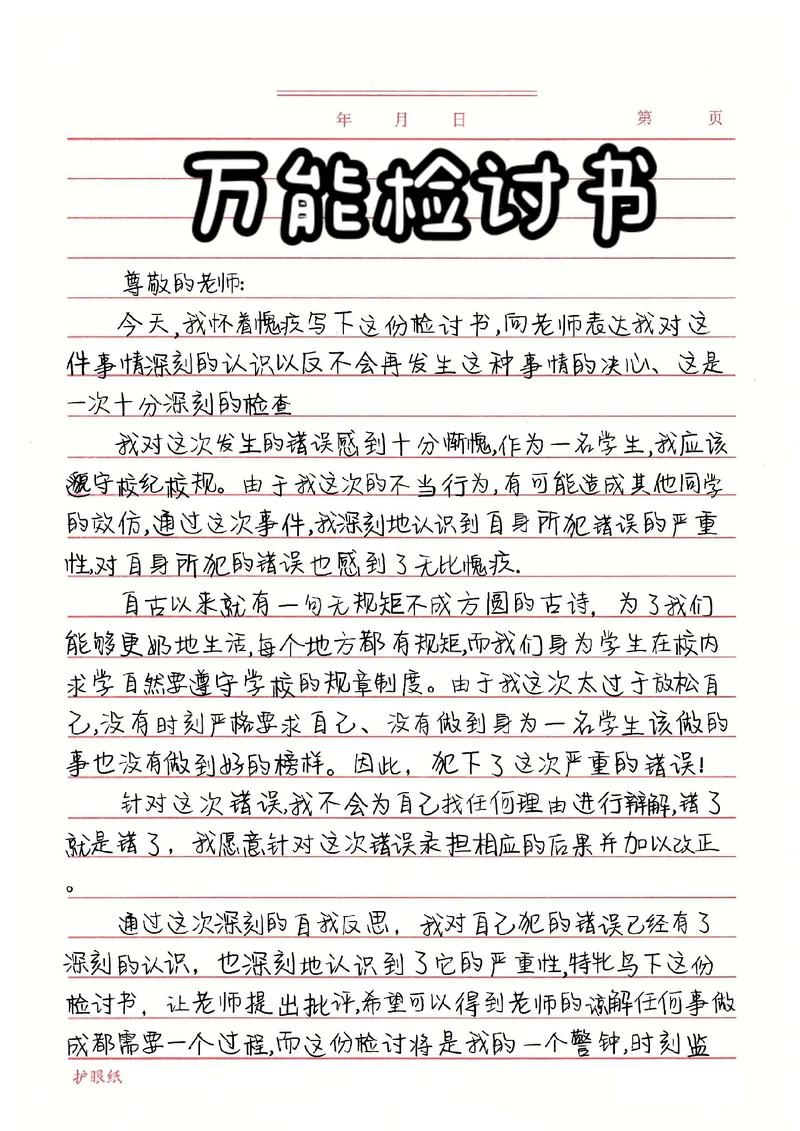 年 月 日 第 页
万能检讨书
尊敬的老师:
今天,我怀着愧疚写下这份检讨书,向老师表达我对这
件事情深刻的认识以反不会再发生这种事情的决心、这是
一次十分深刻的检查
我对这次发生的错误感到十分惭愧,作为一名学生,我应该
遵守校纪校规。由于我这次的不当行为,有可能造成其他同学
的效仿,通过这次事件,我深刻地认识到自身所犯错误的严重
性,对自身所犯的错误也感到了无比愧疚.
自古以来就有一句无规矩不成方圆的古诗,为了我们
能够更奶地生活,每个地方都有规矩,而我们身为学生在校内
求学自然要遵守学校的规章制度。由于我这次太过于放松自
己,没有时刻严格要求自己、没有做到身为一名学生该做的
事也没有做到好的榜样。因此,犯下了这次严重的错误!
针对这次错误,我不会为自己找任何理由进行辩解,错了
就是错了,我愿意针对这次错误录担相应的后果并加以改正
。
通过这次深刻的自我反思,我对自己犯的错误已经有了
深刻的认识,也深刻地认识到了它的严重性,特牝鸟下这份
检讨书,让老师提出批评,希望可以得到老师的谅解任何事做
成都需要一个过程,而这份检讨将是我的一个警钟,时刻监
护眼纸